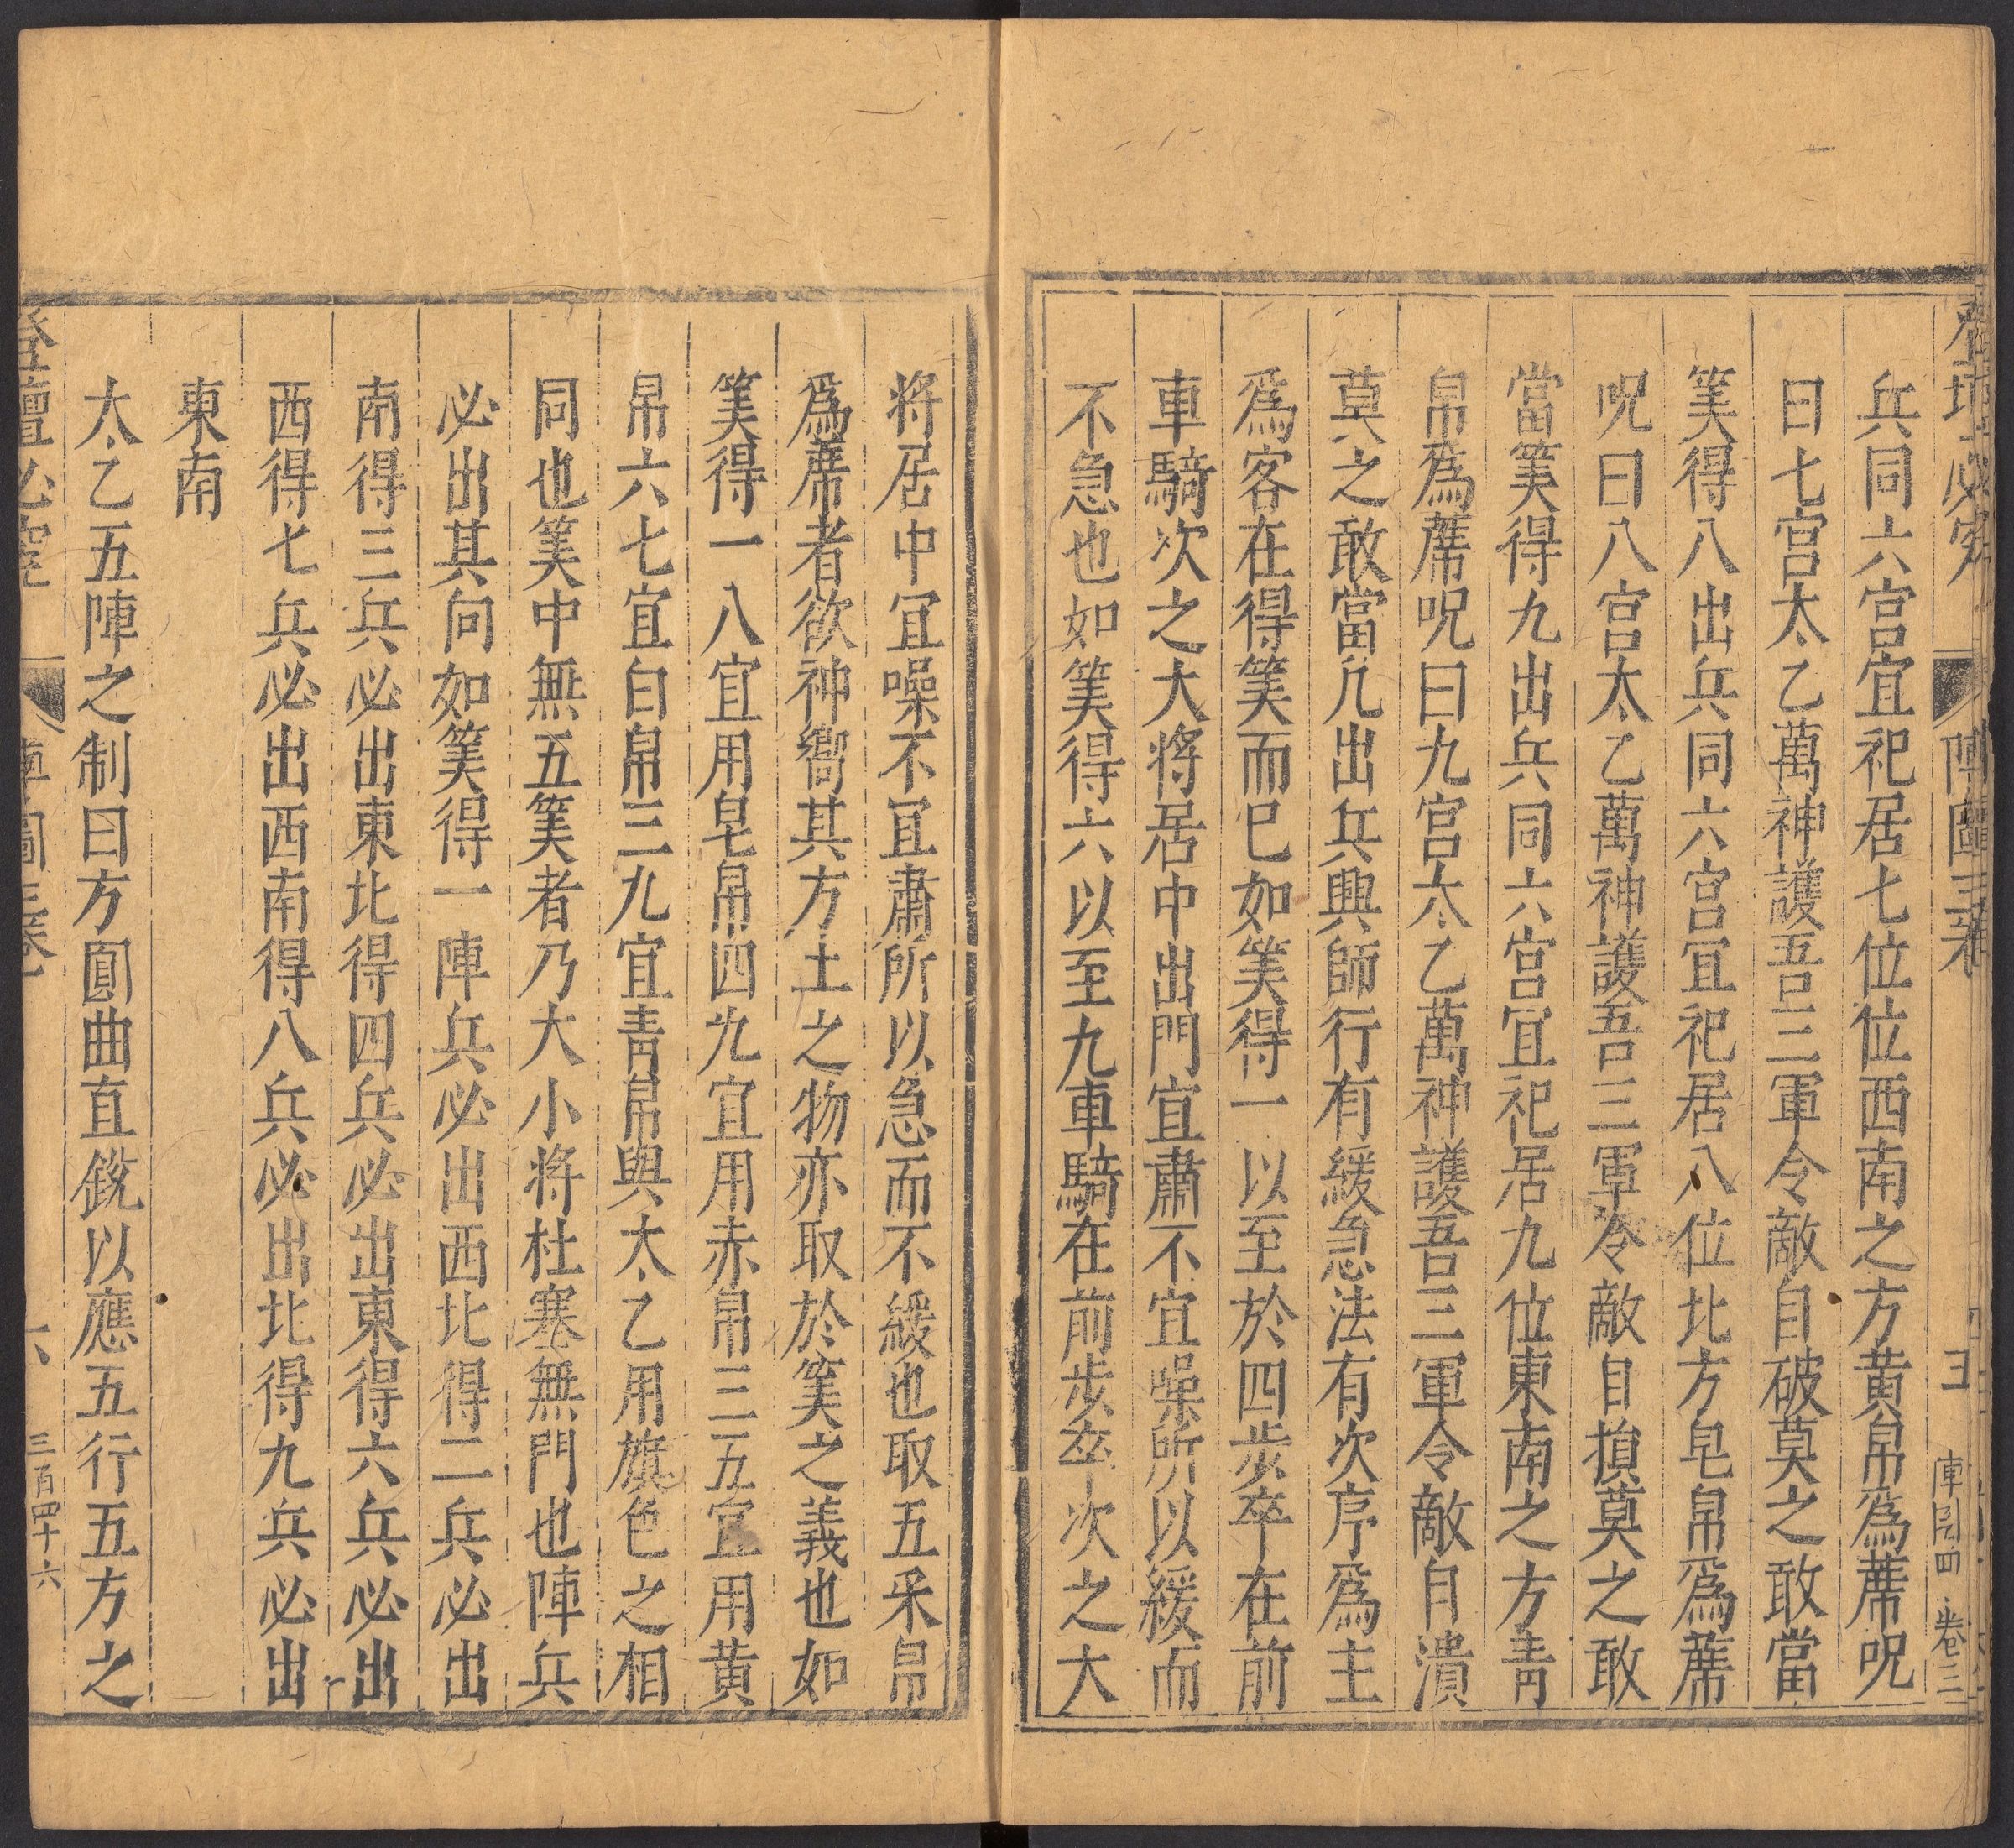 兵同六宮宜祀居七位位西南之方黃帛爲蓆呪
曰七宮太乙萬神護吾三軍令敵自破莫之敢當
筭得八出兵同六宮宜祀居八位北方皂帛爲蓆
呪曰八宮太乙萬神護吾三軍令敵自損莫之敢
當筭得九出兵同六宮宜祀居九位東南之方靑
帛爲蓆呪曰九宮太乙萬神護吾三軍令敵自潰
莫之敢當凡出兵興師行有緩急法有次序爲主
爲客在得筭而巳如筭得一以至於四步卒在前
車騎次之大將居中出門宜肅不宜噪所以緩而
不急也如筭得六以至九車騎在前步卒次之大
將居中宜噪不宜肅所以急而不緩也取五采帛
爲蓆者欲神嚮其方土之物亦取於筭之義也如
筭得一八宜用皂帛四九宜用赤帛三五宜用黃
帛六七宜白帛三九宜靑帛與太乙用旗色之相
同也筭中無五筭者乃大小將杜塞無門也陣兵
必出其向如筭得一陣兵必出西北得二兵必出
南得三兵必出東北得四兵必出東得六兵必出
西得七兵必出西南得八兵必出北得九兵必出
東南
太乙五陣之制曰方圓曲直銳以應五行五方之
登壇必究
陣圖三卷
六
三百四十六